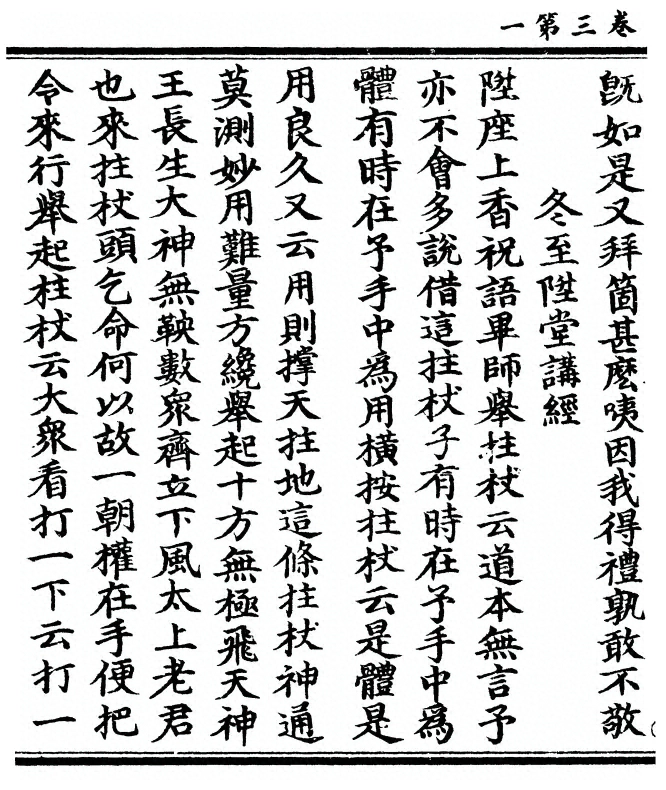 卷三第一
旣如是又拜箇甚麽咦因我得禮孰敢不敬
冬至陞堂講經
陞座上香祝語畢師舉拄杖云道本無言予
亦不會多說借這拄杖子有時在予手中爲
體有時在予手中爲用橫按拄杖云是體是
用良久又云用則撑天拄地這條拄杖神通
莫測妙用難量方纔舉起十方無極飛天神
王長生大神無鞅數衆齊立下風太上老君
也來拄杖頭乞命何以故一朝權在手便把
令來行舉起拄杖云大衆看打一下云打一